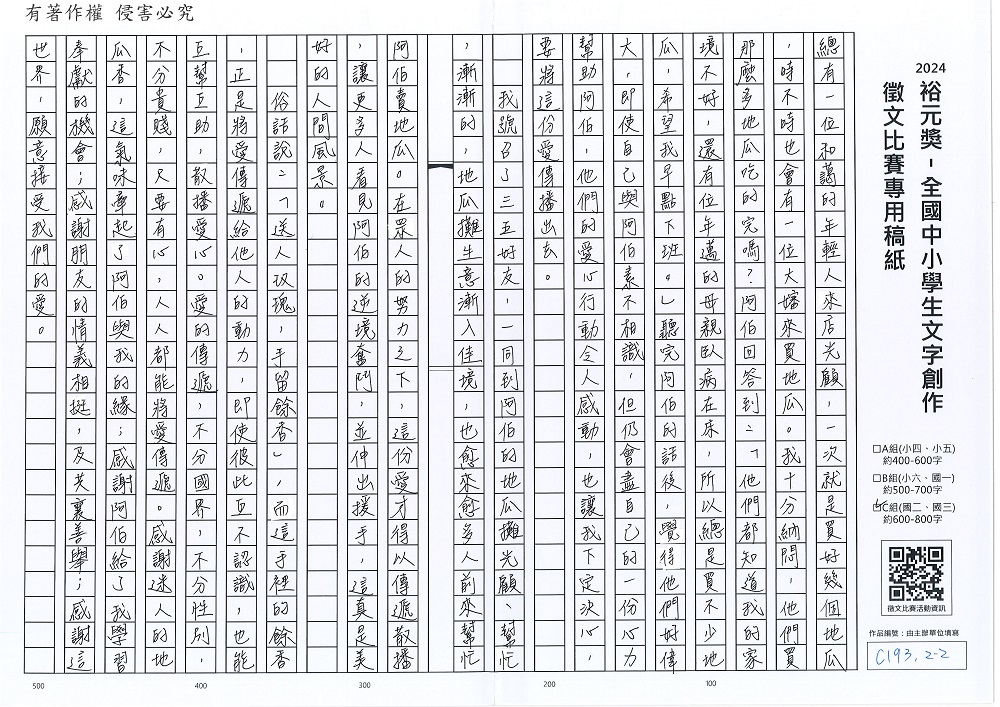 有著作權 侵害必究
2024
裕元獎-全國中小學生文字創作
徵文比賽專用稿紙
□A組(小四、小五)
約400-600字
□B組(小六、國一)
約500-700字
☑C組(國二、國三)
約600-800字
徵文比賽活動資訊
作品編號：由主辦單位填寫
C193. 2-2
總有一位和藹的年輕人來店光顧，一次就是買好幾個地瓜
，時不時也會有一位大嬸來買地瓜。我十分納悶，他們買
那麼多地瓜吃的完嗎？阿伯回答到：「他們都知道我的家
境不好，還有位年邁的母親臥病在床，所以總是買不少地
瓜，希望我早點下班。」聽完阿伯的話後，覺得他們好偉
大，即使自己與阿伯素不相識，但仍會盡自己的一份心力
幫助阿伯，他們的愛心行動令人感動，也讓我下定決心，
要將這份愛傳播出去。
我號召了三五好友，一同到阿伯的地瓜攤光顧、幫忙
，漸漸的，地瓜攤生意漸入佳境，也愈來愈多人前來幫忙
阿伯賣地瓜。在眾人的努力之下，這份愛才得以傳遞散播
，讓更多人看見阿伯的逆境奮鬥，並伸出援手，這真是美
好的人間風景。
俗話說：「送人玫瑰，手留餘香」，而這手裡的餘香
，正是將愛傳遞給他人的動力，即使彼此互不認識，也能
互幫互助，散播愛心。愛的傳遞，不分國界、不分性別，
不分貴賤，只要有心，人人都能將愛傳遞。感謝迷人的地
瓜香，這氣味牽起了阿伯與我的緣；感謝阿伯給了我學習
奉獻的機會；感謝朋友的情義相挺，及共襄善舉；感謝這
世界，願意接受我們的愛。
100
200
300
400
500